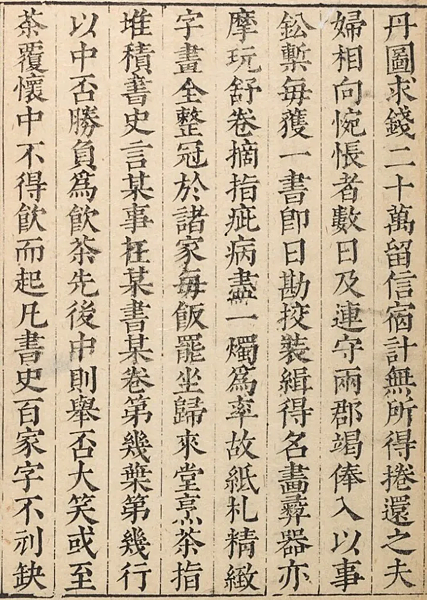 丹圖求錢二十萬留信宿計無所得捲還之夫
婦相向惋悵者數日及連守兩郡竭俸入以事
鈆槧每獲一書即日勘挍裝緝得名畫彝器亦
摩玩舒卷摘指疵病盡一燭爲率故紙札精緻
字畫全整冠於諸家每飯罷坐歸來堂烹茶指
堆積書史言某事在某書某卷第幾葉第幾行
以中否勝負爲飲茶先後中則舉否大笑或至
茶覆懷中不得飲而起凡書史百家字不刓缺